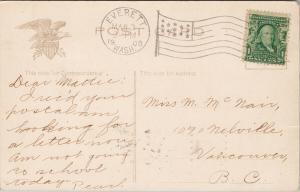 EVERETT
WASH.
POST CARD
This side for Correspondence
This side for address.
Dear Mattie:
I rec'd your
postal am
looking for
a letter now
am not going
to school
today
Pearl.
Miss M. McNair,
1070 Melville,
Vancouver,
B.C.